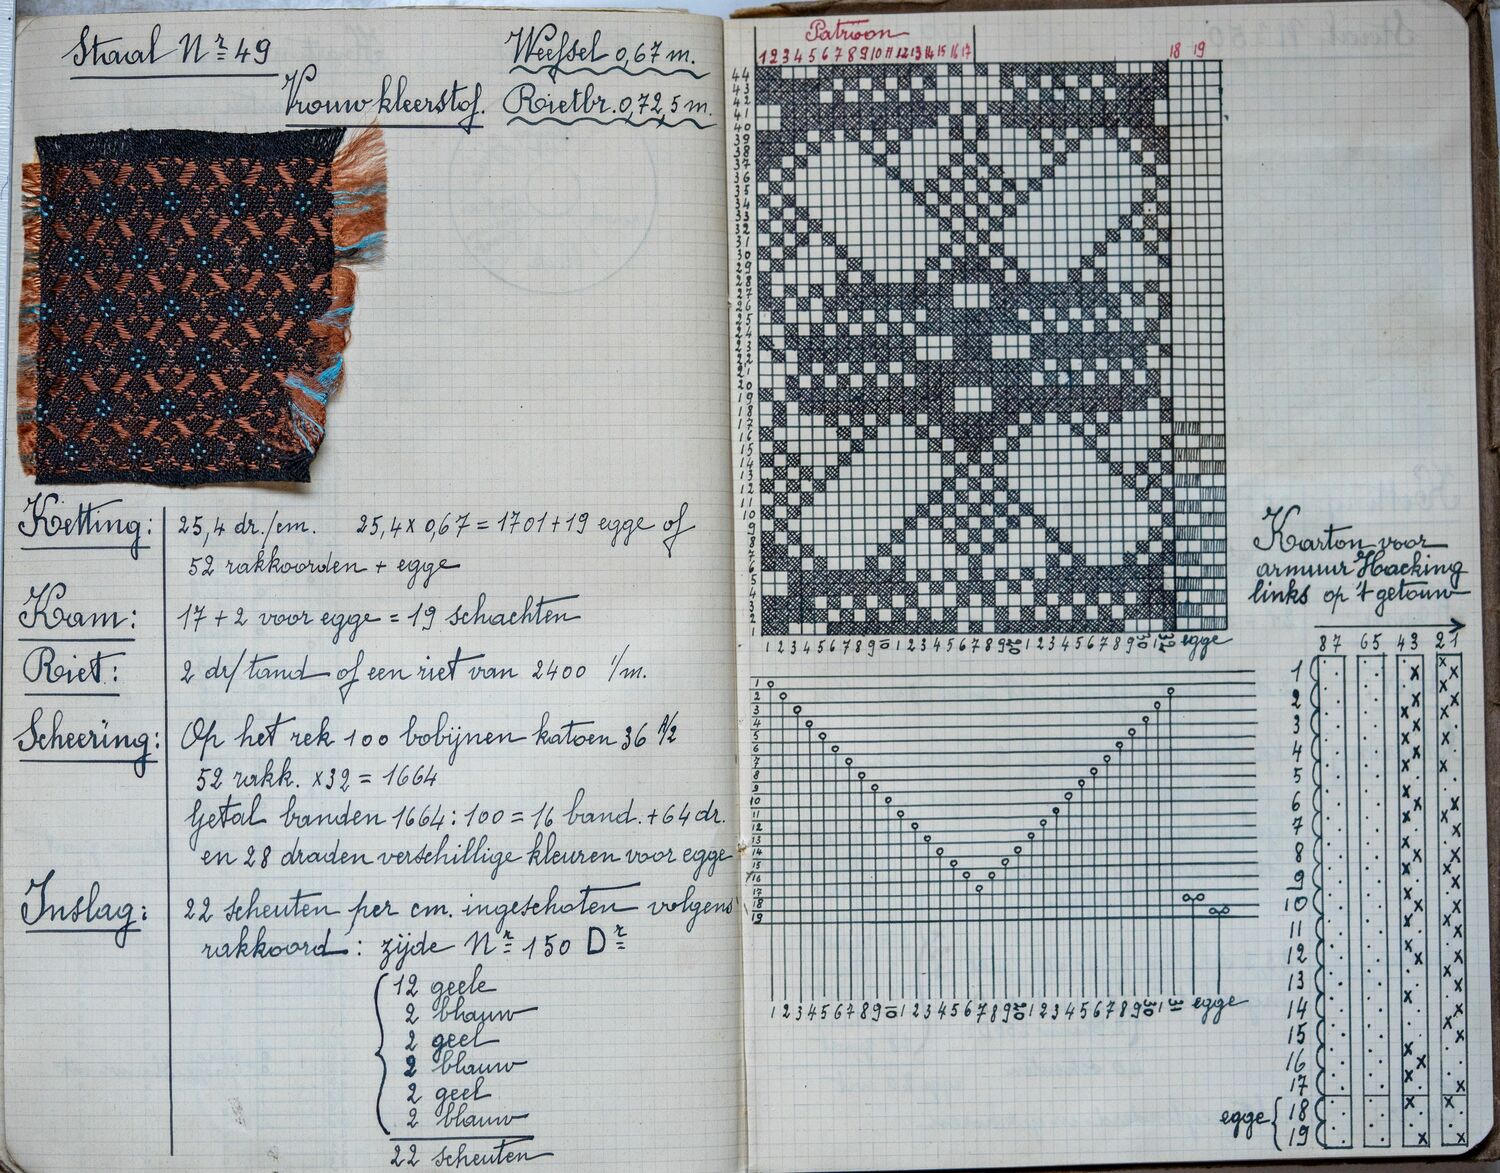 Staal Nr 49
Weefsel 0,67 m.
Vrouwkleerstof. Rietbr. 0,72,5 m.
Ketting: 25,4 dr./cm. 25,4 x 0,67 = 1701 + 19 egge of
52 rakkoorden + egge
Kam: 17 + 2 voor egge = 19 schachten
Riet: 2 dr/tand of een riet van 2400 1/m.
Scheering: Op het rek 100 bobijnen katoen 36 A/2
52 rakk. x 32 = 1664
Getal banden 1664 : 100 = 16 band. + 64 dr.
en 28 draden verschillige kleuren voor egge
Inslag: 22 scheuten per cm. ingeschoten volgens
rakkoord: zijde Nr 150 Dr
12 geele
2 blauw
2 geel
2 blauw
2 geel
2 blauw
22 scheuten
Patroon
1 2 3 4 5 6 7 8 9 10 11 12 13 14 15 16 17 18 19
44
43
42
41
40
39
38
37
36
35
34
33
32
31
30
29
28
27
26
25
24
23
22
21
20
19
18
17
16
15
14
13
12
11
10
9
8
7
6
5
4
3
2
1
1 2 3 4 5 6 7 8 9 10 1 2 3 4 5 6 7 8 9 20 1 2 3 4 5 6 7 8 9 30 1 32 egge
1
2
3
4
5
6
7
8
9
10
11
12
13
14
15
16
17
18
19
1 2 3 4 5 6 7 8 9 10 1 2 3 4 5 6 7 8 9 20 1 2 3 4 5 6 7 8 9 30 1 egge
Karton voor
armuur Hacking
links op 't getouw
87 65 43 21
1
2
3
4
5
6
7
8
9
10
11
12
13
14
15
16
17
egge 18
19